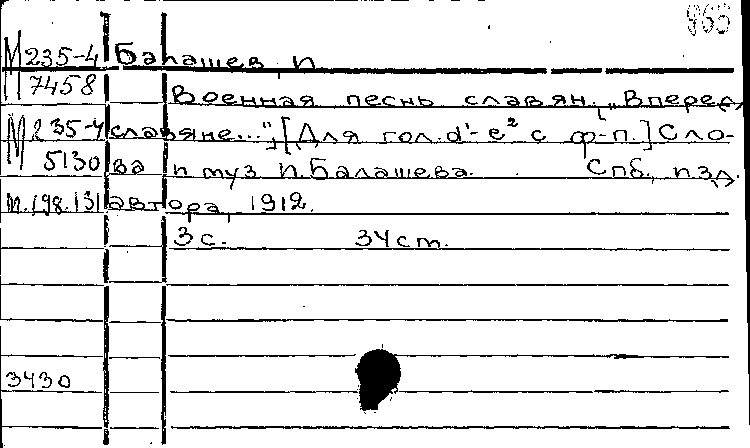 963
М 235-4 Балашев, П.
7458 Военная песнь славян. „Вперед,
М 235-4 славяне...", [Для гол. d¹-e² с ф-п.] Сло-
5130 ва и муз П. Балашева. Спб., изд.
м.198.131 автора, 1912.
3 с. 34 ст.
3430